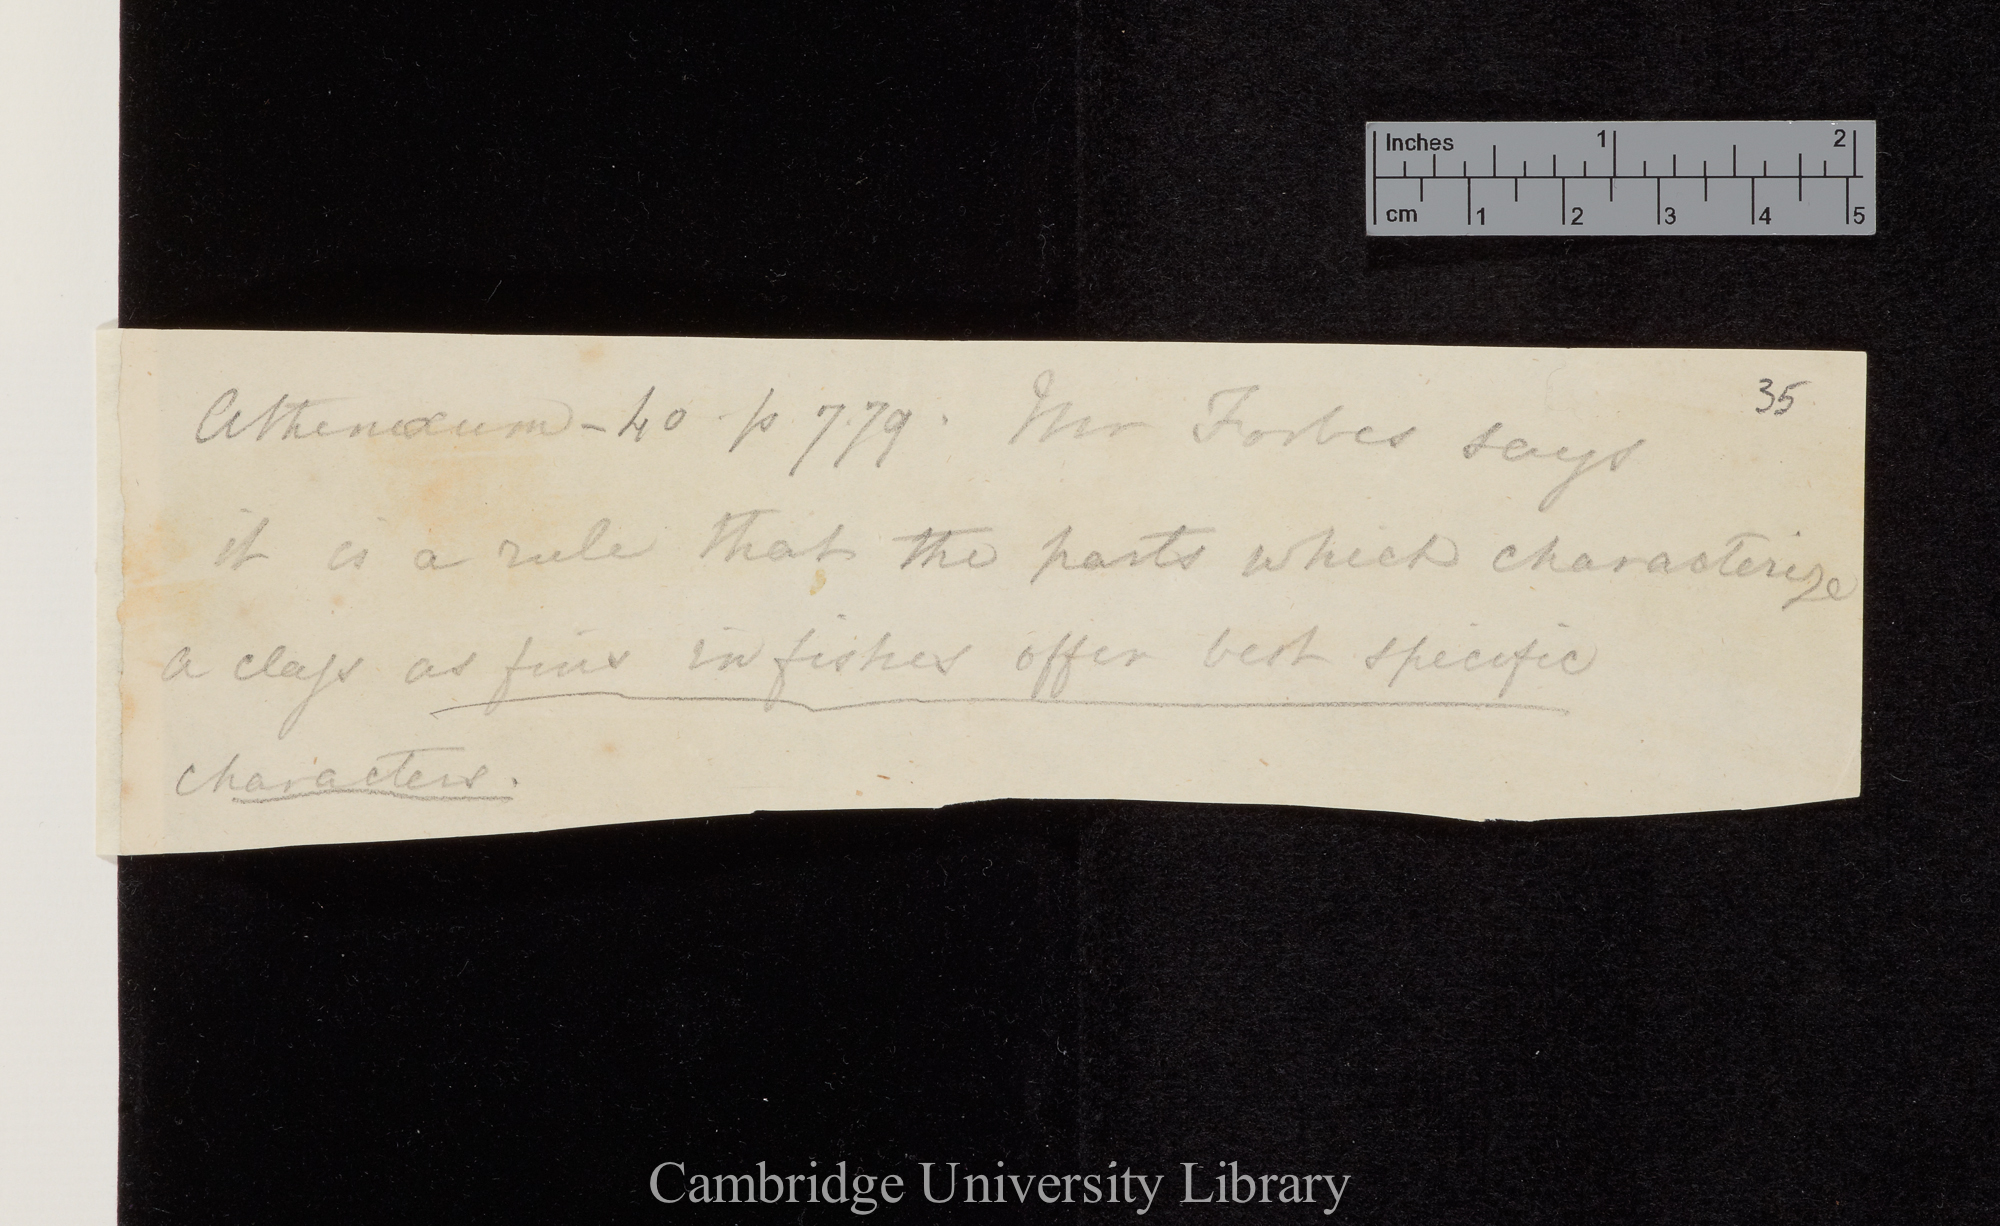 Inches 1 2
cm 1 2 3 4 5
35
Athenæum - 40 · p 779. Mr Forbes says
it is a rule that the parts which characterize
a class as fins in fishes offer best specific
characters.
Cambridge University Library